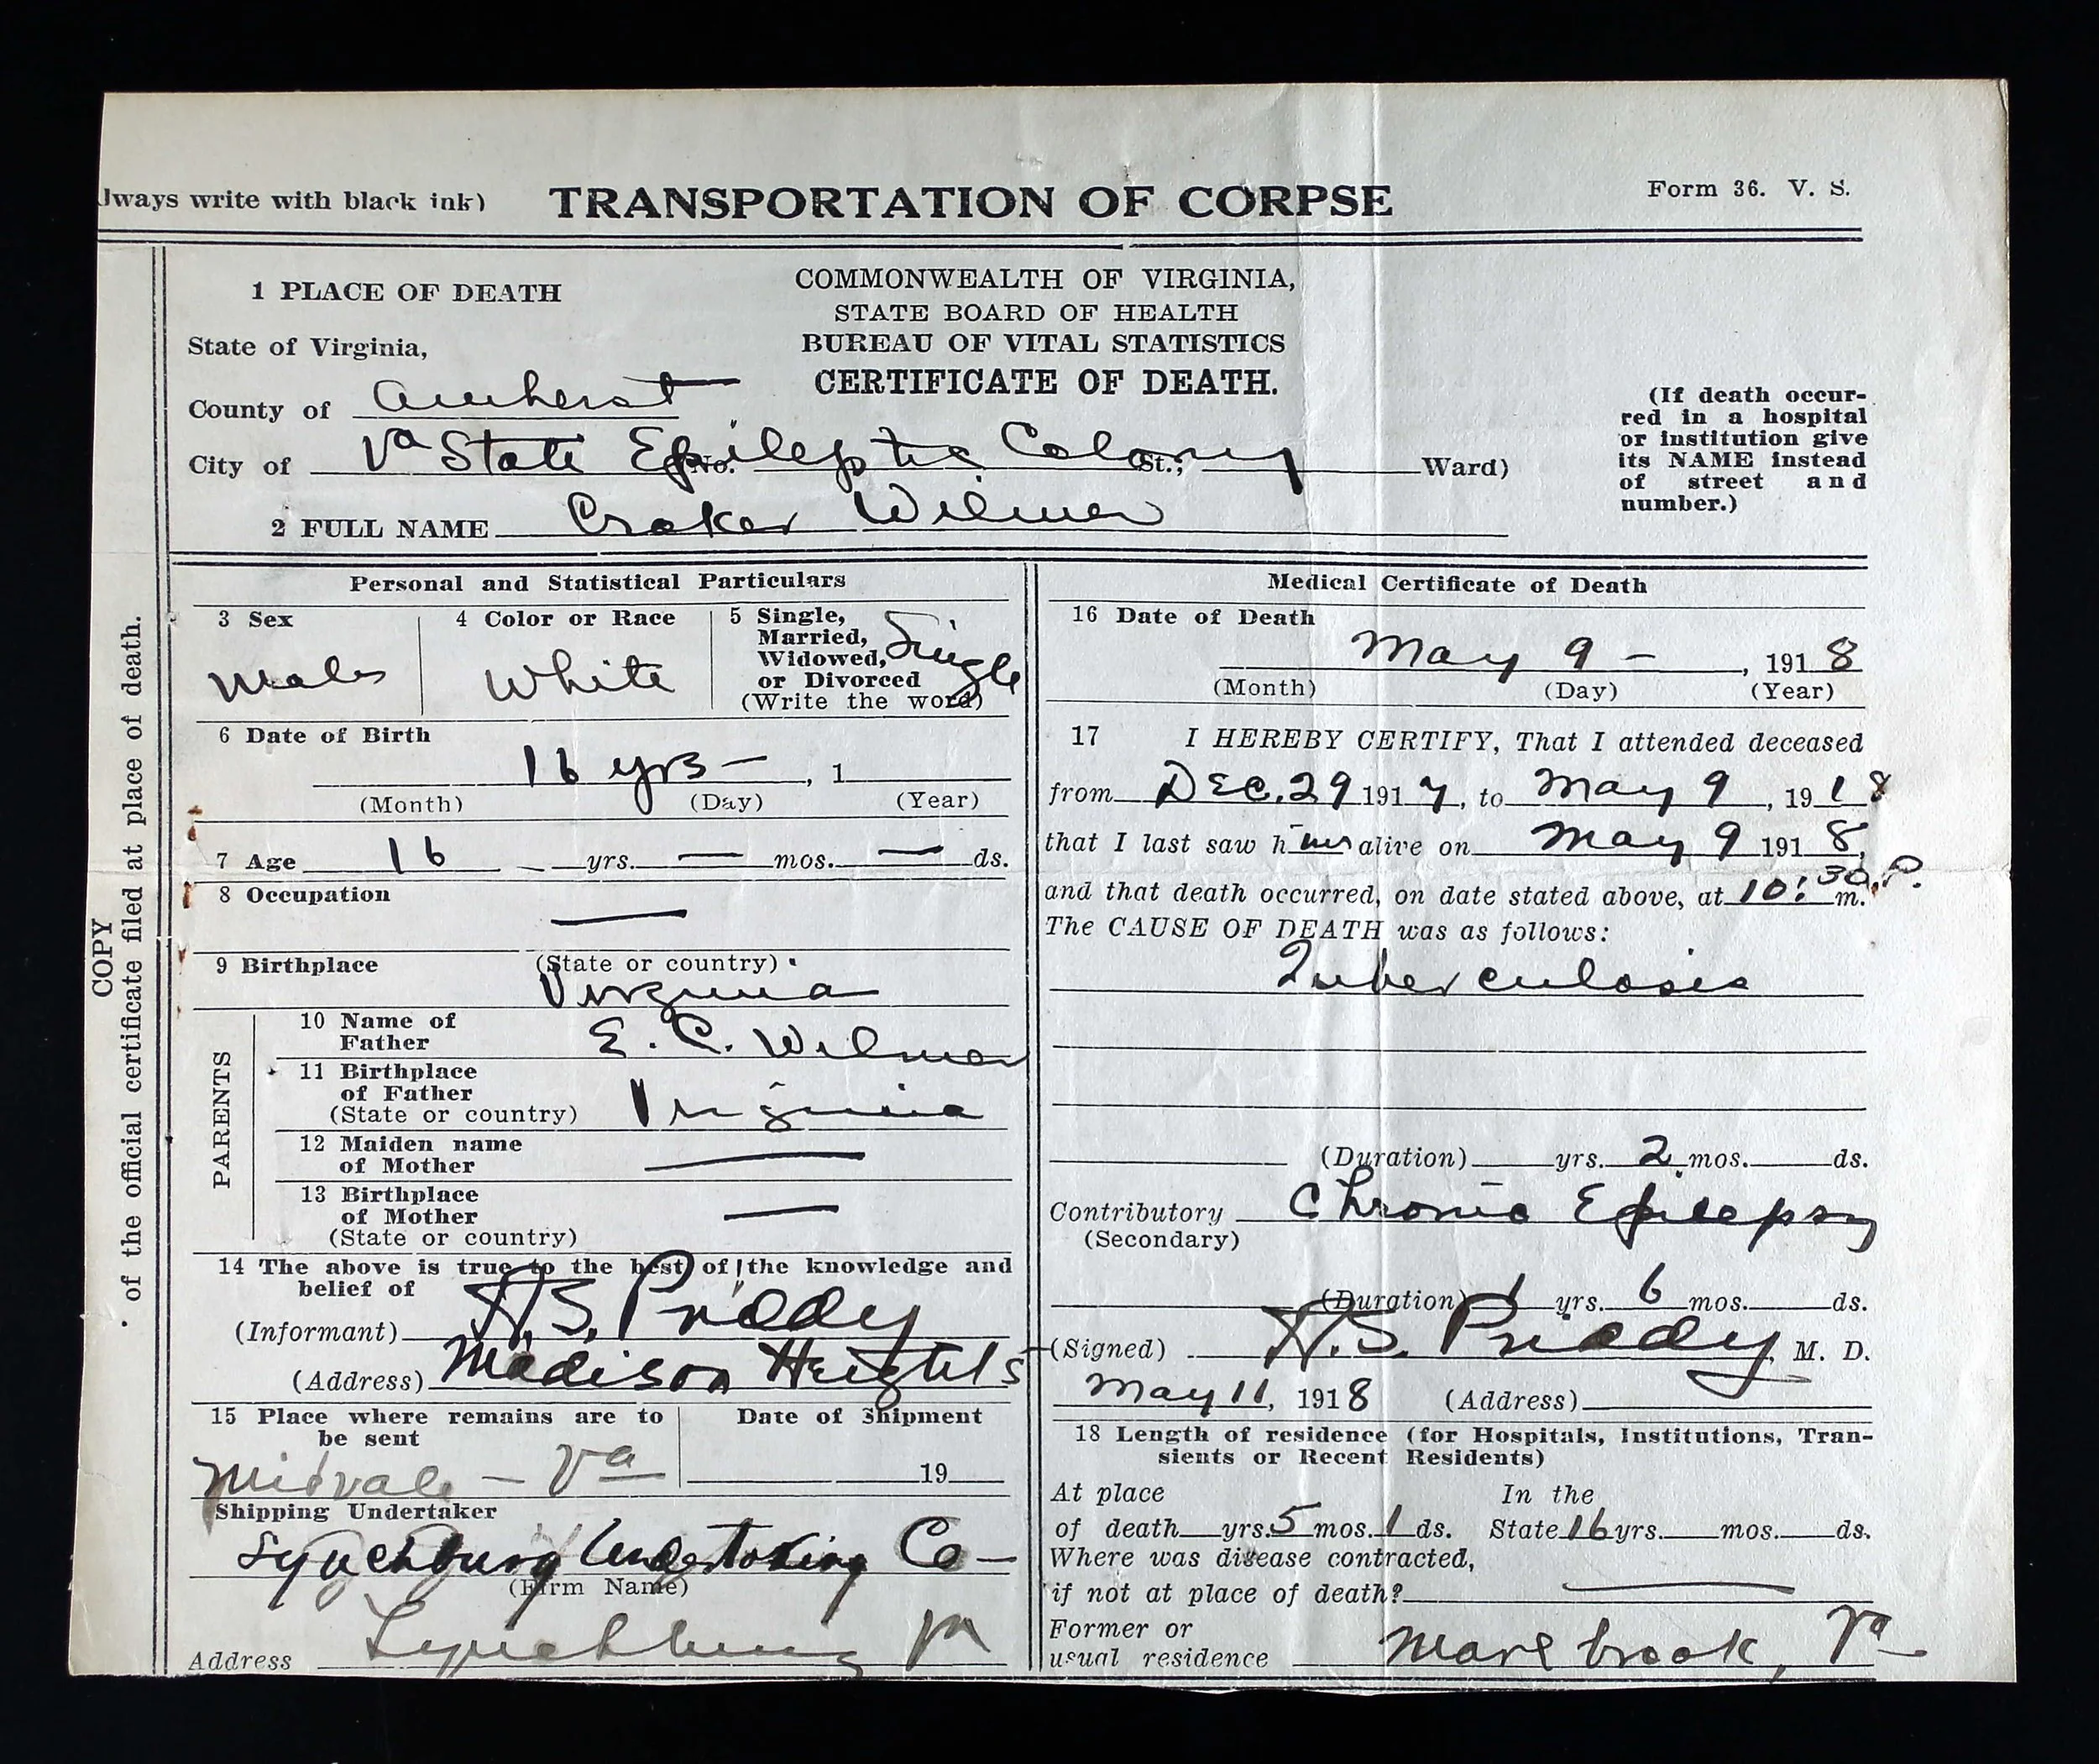 lways write with black ink)
TRANSPORTATION OF CORPSE
Form 36. V. S.
1 PLACE OF DEATH
COMMONWEALTH OF VIRGINIA,
STATE BOARD OF HEALTH
BUREAU OF VITAL STATISTICS
CERTIFICATE OF DEATH.
State of Virginia,
County of Amherst
City of Va State Epileptic Colony No. St.; Ward)
(If death occur-
red in a hospital
or institution give
its NAME instead
of street and
number.)
2 FULL NAME Croker Wilmer
COPY
of the official certificate filed at place of death.
Personal and Statistical Particulars
3 Sex
Male
4 Color or Race
White
5 Single,
Married,
Widowed,
or Divorced
(Write the word)
Single
6 Date of Birth
16 yrs – , 1
(Month) (Day) (Year)
7 Age 16 yrs. — mos. — ds.
8 Occupation
—
9 Birthplace (State or country)
Virginia
PARENTS
10 Name of
Father
E. C. Wilmer
11 Birthplace
of Father
(State or country) Virginia
12 Maiden name
of Mother —
13 Birthplace
of Mother —
(State or country)
14 The above is true to the best of the knowledge and
belief of
(Informant) A.S. Priddy
(Address) Madison Heights
15 Place where remains are to
be sent
Midvale – Va
Date of Shipment
19
Shipping Undertaker
Lynchburg Undertaking Co –
(Firm Name)
Address Lynchburg Va
Medical Certificate of Death
16 Date of Death
May 9 – , 1918
(Month) (Day) (Year)
17 I HEREBY CERTIFY, That I attended deceased
from Dec. 29 1917, to May 9, 1918
that I last saw him alive on May 9 1918,
and that death occurred, on date stated above, at 10:30 P. m.
The CAUSE OF DEATH was as follows:
Tuberculosis
(Duration) yrs. 2 mos. ds.
Contributory Chronic Epilepsy
(Secondary)
(Duration) 1 yrs. 6 mos. ds.
(Signed) A.S. Priddy, M. D.
May 11, 1918 (Address)
18 Length of residence (for Hospitals, Institutions, Tran-
sients or Recent Residents)
At place In the
of death yrs. 5 mos. 1 ds. State 16 yrs. mos. ds.
Where was disease contracted,
if not at place of death? —
Former or
usual residence Marlbrook, Va